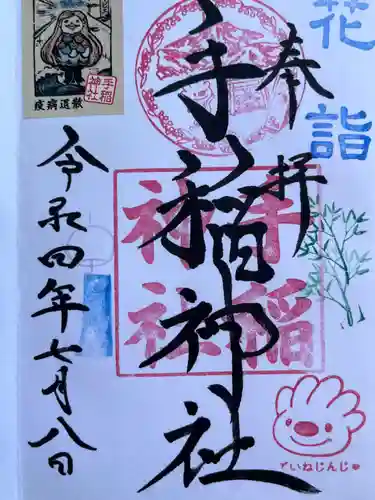 花詣
奉拝
手稲神社
手稲神社
令和四年七月八日
手稲神社
疫病退散
ていねじんじゃ